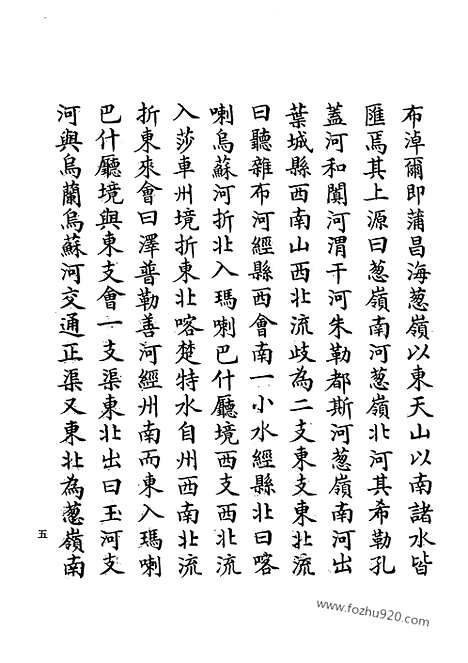 布淖爾即蒲昌海蔥嶺以東天山以南諸水皆
匯焉其上源曰蔥嶺南河蔥嶺北河其希勒孔
蓋河和闐河渭干河朱勒都斯河蔥嶺南河出
葉城縣西南山西北流歧為二支東支東北流
曰聽雜布河經縣西會南一小水經縣北曰喀
喇烏蘇河折北入瑪喇巴什廳境西支西北流
入莎車州境折東北喀楚特水自州西南北流
折東來會曰澤普勒善河經州南而東入瑪喇
巴什廳境與東支會一支渠東北出曰玉河支
河與烏蘭烏蘇河交通正渠又東北為蔥嶺南
五
www.fozhu920.com